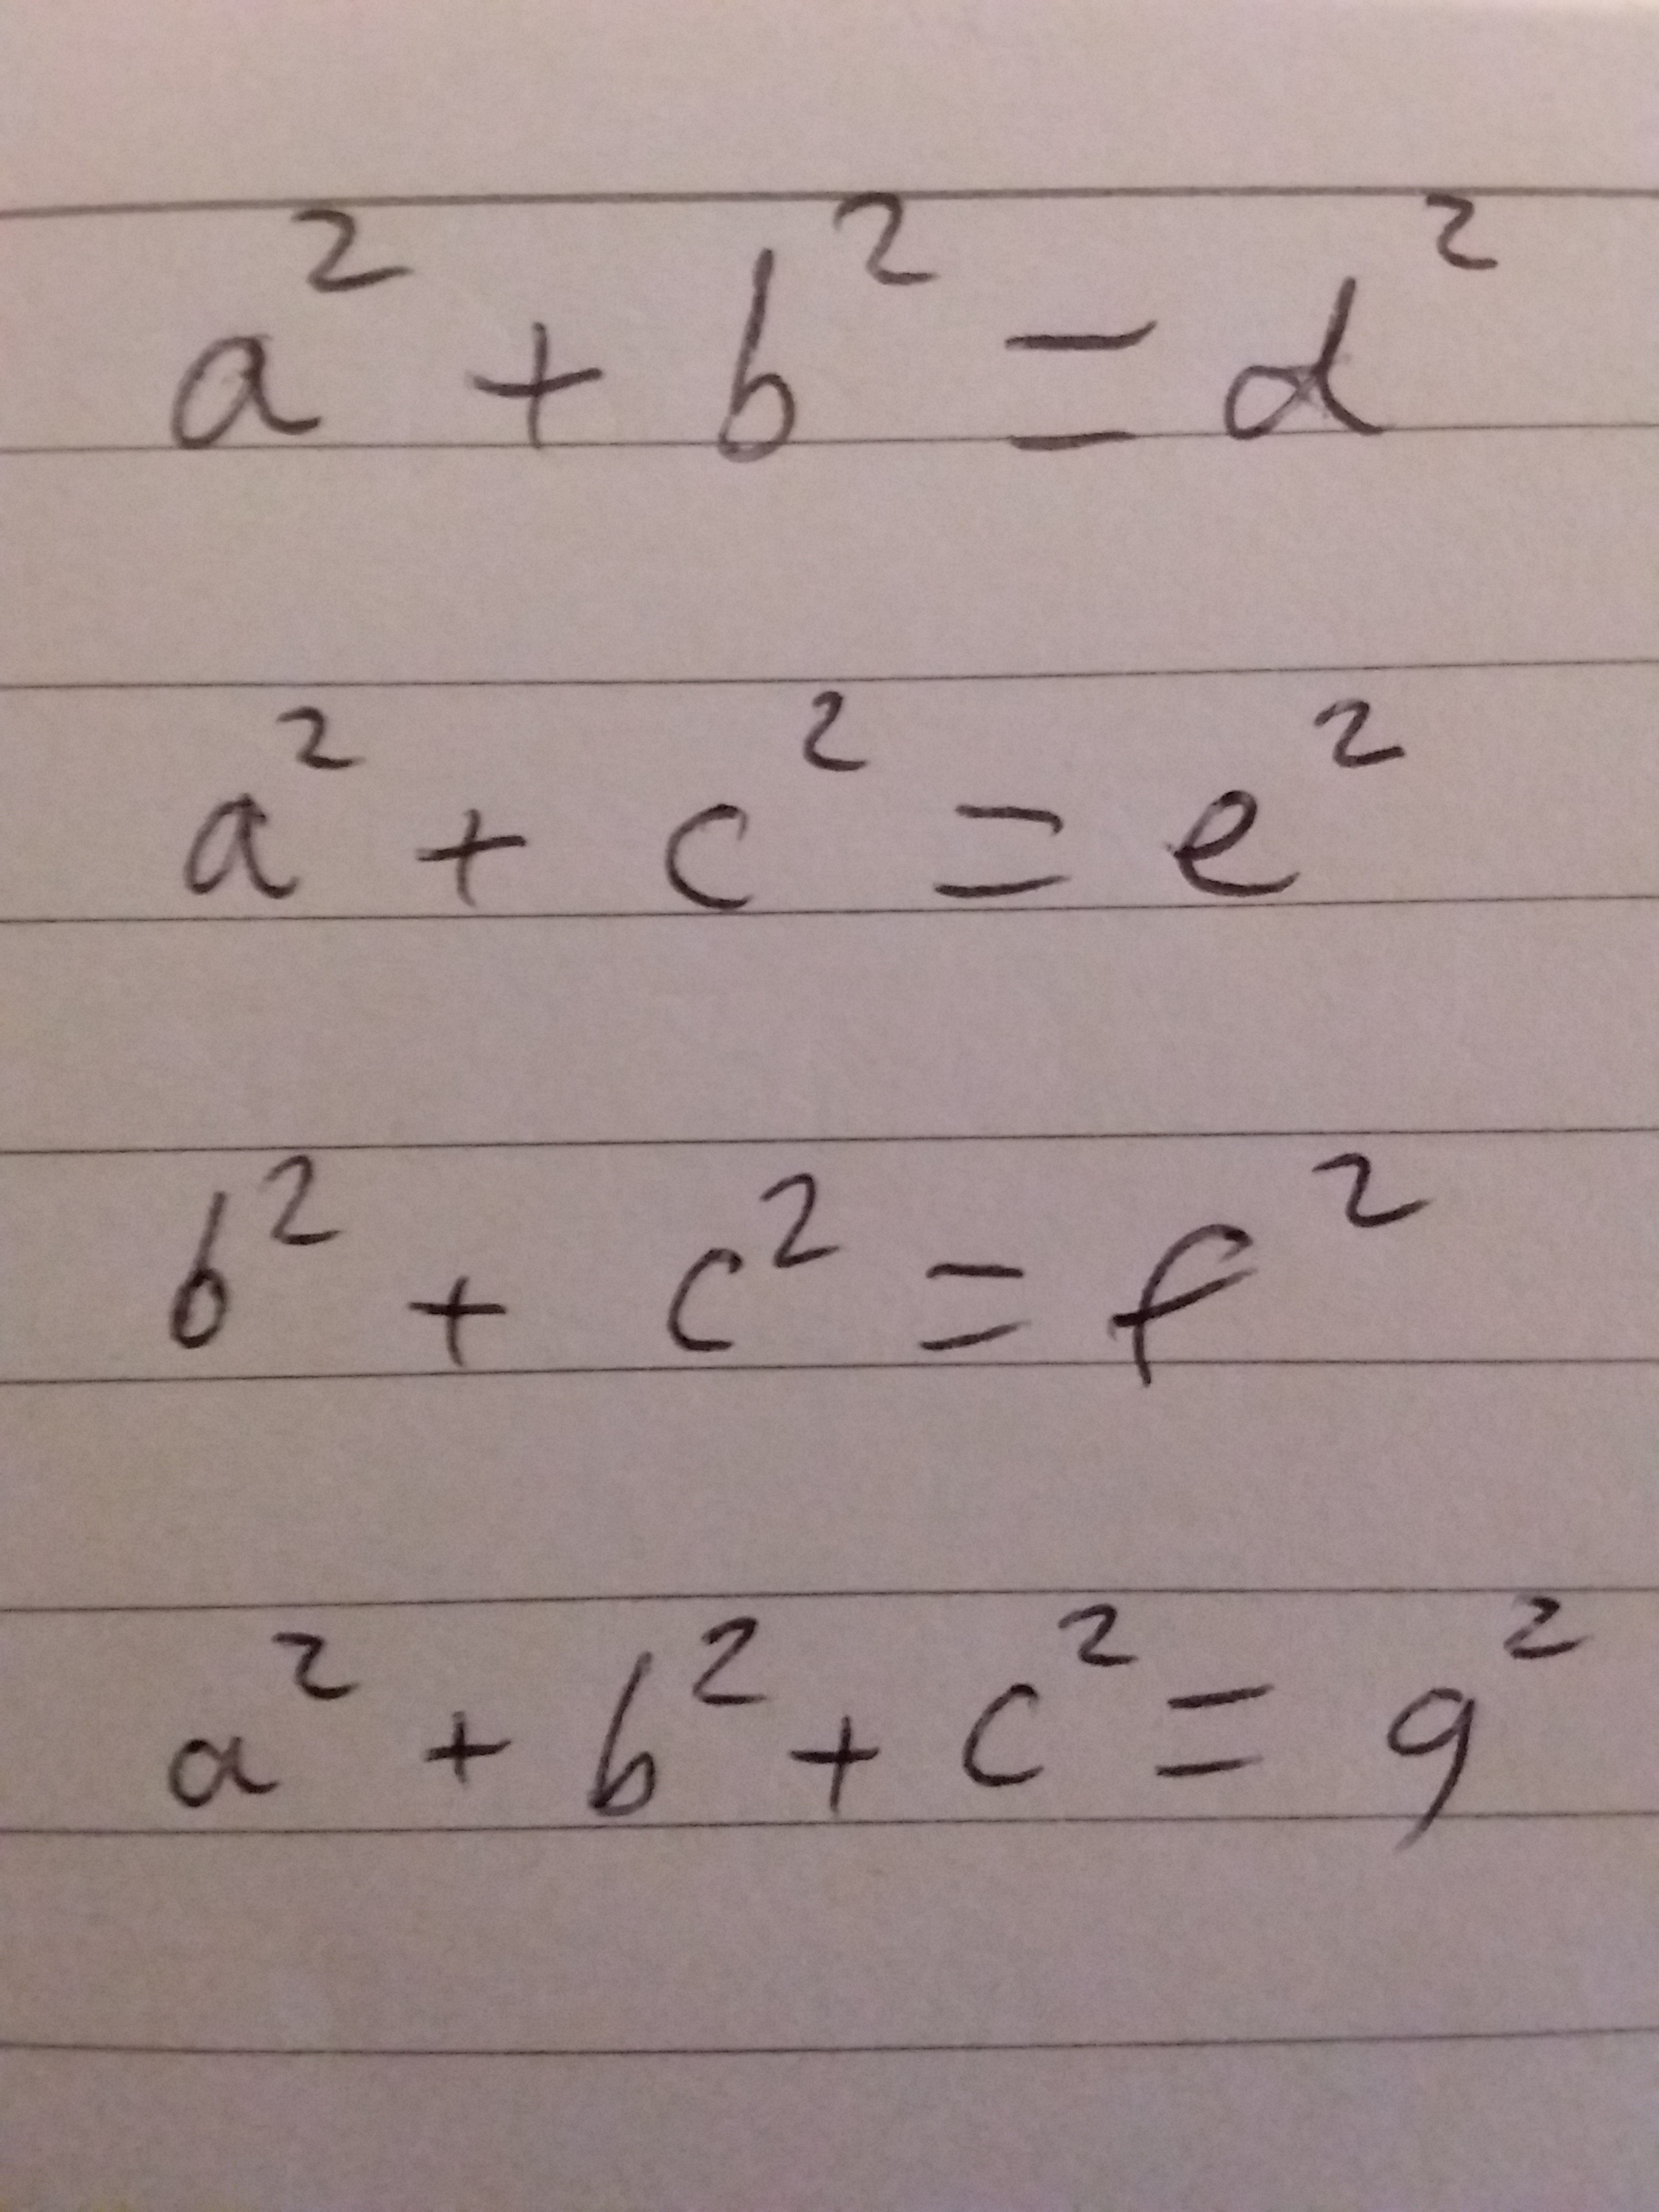 a² + b² = d²
a² + c² = e²
b² + c² = f²
a² + b² + c² = g²